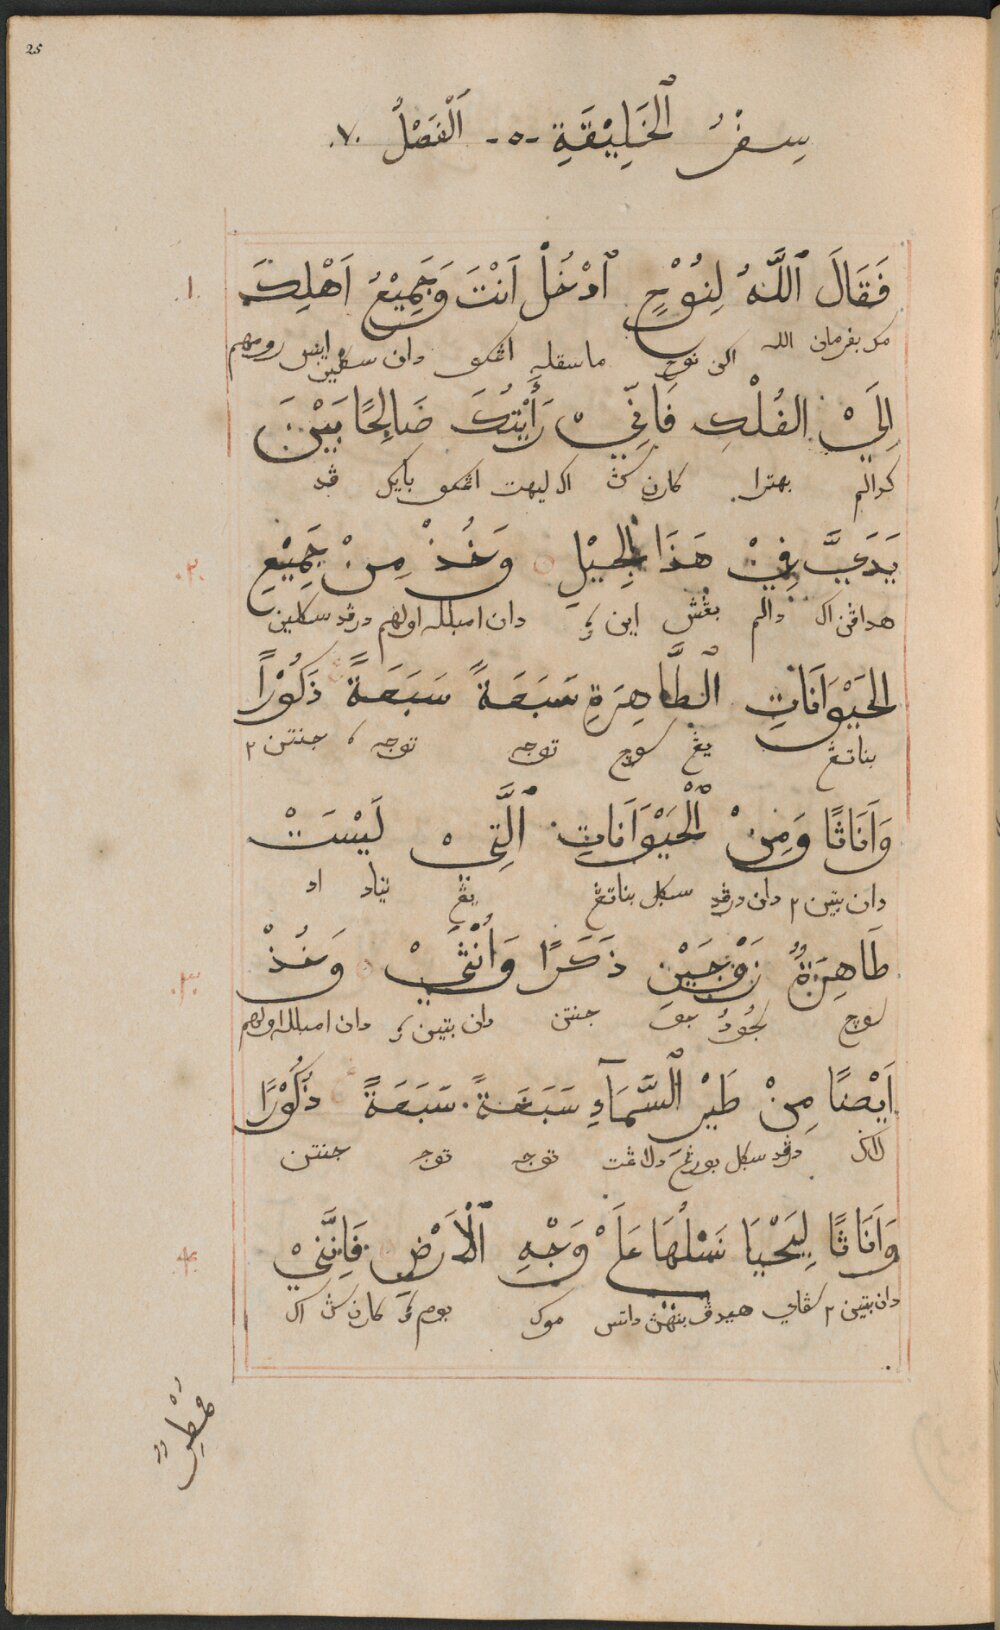 25
سِفْرُ ٱلْخَلِيْقَةِ -٥- اَلْفَصْلُ ٧.
.١. فَقَالَ ٱللَّهُ لِنُوْحٍ ٱدْخُلْ اَنْتَ وَجَمِيْعُ اَهْلِكَ
مک بفرمان الله اکن نوح ماسقله اڠکو دان سکلين ايسي رومهم
اِلَيْ الفُلْكِ فَاِنِّيْ رَأَيْتُكَ صَالِحًا بَيْنَ
کدالم بهترا کارن اک ليهت اڠکو بايک ڤد
يَدَيَّ فِيْ هَذَا الجِيْلِ وَخُذْ مِنْ جَمِيْعِ
.٢.
هداڤن اک دالم بڠس اين دان امبلله اولهم درڤد سکلين
الحَيْوَانَاتِ ٱلطَّاهِرَةِ سَبَعَةً سَبَعَةً ذَكُوْرًا
بناتڠ يڠ سوچ توجه توجه جنتن ٢
وَاَنَاثًا وَمِنْ ٱلْحَيْوَانَاتِ ٱلَّتِيْ لَيْسَتْ
دان بتين ٢ دان درڤد سکل بناتڠ يڠ تياد اد
طَاهِرَةٌ زَوْجَيْنِ ذَكَرًا وَاُنْثَيْ وَخُذْ
.٣.
سوچ جنتن دان بتين دان امبلله اولهم
اَيْضًا مِنْ طَيْرِ ٱلسَّمَآءِ سَبَعَةً سَبَعَةً ذُكُوْرًا
درڤد سکل بورڠ دلاڠت توجه توجه جنتن
وَاَنَاثًا لِيَحْيَا نَسْلُهَا عَلَيْ وَجْهِ ٱلْاَرْضِ فَاِنَّنِيْ
.٤.
دان بتين ٢ سڤاي هيدڤ بنهن داتس موک بوم کارن اک
مُمْطِرٌ